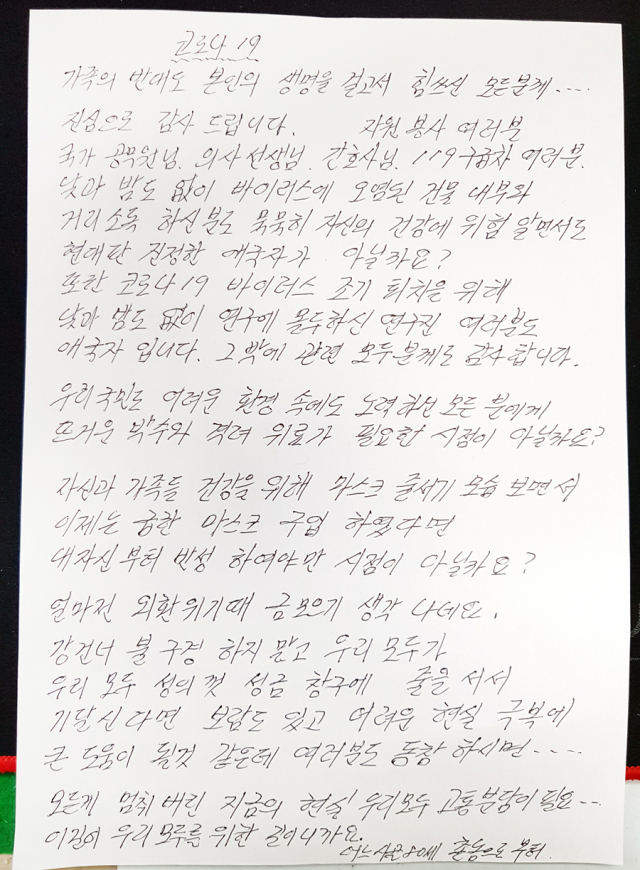 코로나 19
가족의 반대도 본인의 생명을 걸고서 힘쓰신 모든분께....
진심으로 감사 드립니다. 자원 봉사 여러분
국가 공무원님. 의사 선생님. 간호사님. 119 구급차 여러분.
낮과 밤도 없이 바이러스에 오염된 건물 내부와
거리소독 하신분도 묵묵히 자신의 건강에 위험 알면서도
현대판 진정한 애국자가 아닐까요?
또한 코로나19 바이러스 조기 퇴치을 위해
낮과 밤도 없이 연구에 몰두하신 연구진 여러분도
애국자 입니다. 그밖에 관련 모두분께도 감사합니다.
우리국민도 어려운 환경 속에도 노력하신 모든 분에게
뜨거운 박수와 격려 위로가 필요한 시점이 아닐까요?
자신과 가족들 건강을 위해 마스크 줄서기 모습 보면서
이제는 급한 마스크 구입 하였다면
내자신부터 반성 하여야만 시점이 아닐까요?
얼마전 외환위기때 금모으기 생각 나네요.
강건너 불구경 하지 말고 우리 모두가
우리 모두 성의껏 성금 창구에 줄을 서서
기달신다면 보람도 있고 어려운 현실 극복에
큰 도움이 될것 같은데 여러분도 동참 하시면....
모든게 멈춰 버린 지금의 현실 우리모두 고통분담이 필요...
이길이 우리 모두를 위한 길이니까요.
어느 촌놈으로 부터.